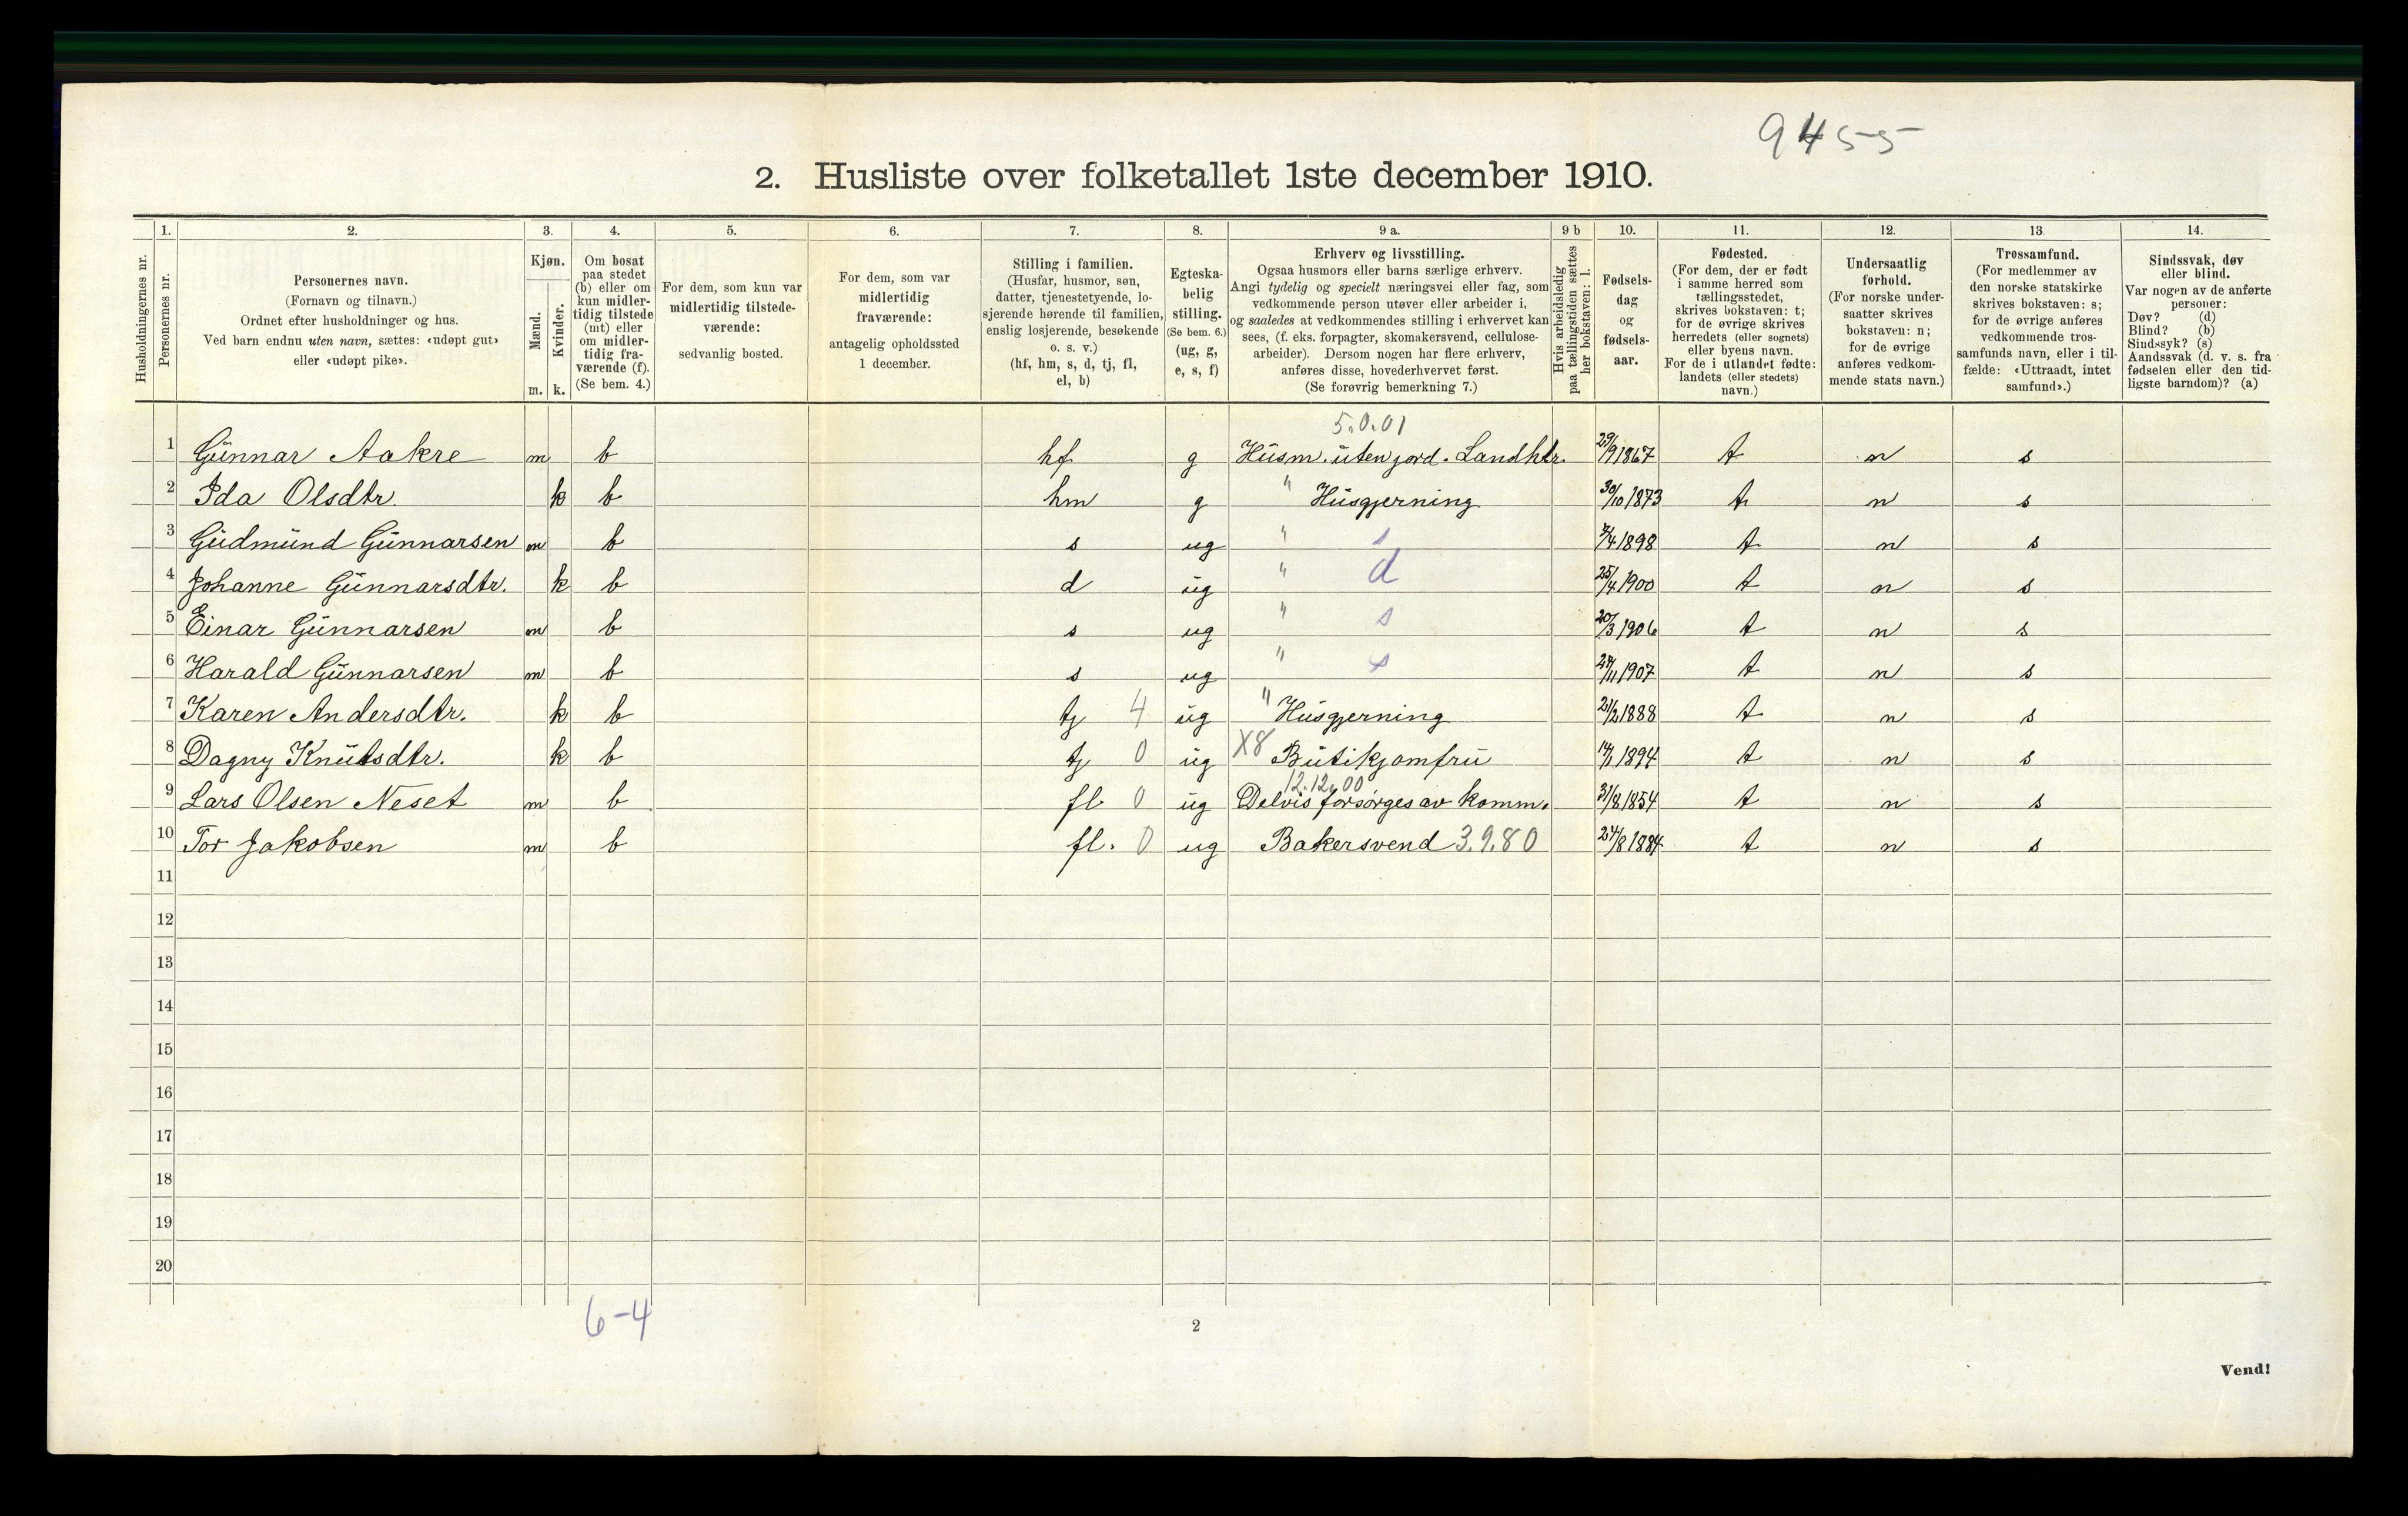 9455
2. Husliste over folketallet 1ste december 1910.
1. 2. 3. 4. 5. 6. 7. 8. 9 a. 9 b 10. 11. 12. 13. 14.
Husholdningernes nr.
Personernes nr.
Personernes navn.
(Fornavn og tilnavn.)
Ordnet efter husholdninger og hus.
Ved barn endnu uten navn, sættes: «udøpt gut»
eller «udøpt pike».
Kjøn.
Mænd.
Kvinder.
m. k.
Om bosat
paa stedet
(b) eller om
kun midler-
tidig tilstede
(mt) eller
om midler-
tidig fra-
værende (f).
(Se bem. 4.)
For dem, som kun var
midlertidig tilstede-
værende:
sedvanlig bosted.
For dem, som var
midlertidig
fraværende:
antagelig opholdssted
1 december.
Stilling i familien.
(Husfar, husmor, søn,
datter, tjenestetyende, lo-
sjerende hørende til familien,
enslig losjerende, besøkende
o. s. v.)
(hf, hm, s, d, tj, fl,
el, b)
Egteska-
belig
stilling.
(Se bem. 6.)
(ug, g,
e, s, f)
Erhverv og livsstilling.
Ogsaa husmors eller barns særlige erhverv.
Angi tydelig og specielt næringsvei eller fag, som
vedkommende person utøver eller arbeider i,
og saaledes at vedkommendes stilling i erhvervet kan
sees, (f. eks. forpagter, skomakersvend, cellulose-
arbeider). Dersom nogen har flere erhverv,
anføres disse, hovederhvervet først.
(Se forøvrig bemerkning 7.)
Hvis arbeidsledig
paa tællingstiden sættes
her bokstaven: l.
Fødsels-
dag
og
fødsels-
aar.
Fødested.
(For dem, der er født
i samme herred som
tællingsstedet,
skrives bokstaven: t;
for de øvrige skrives
herredets (eller sognets)
eller byens navn.
For de i utlandet fødte:
landets (eller stedets)
navn.)
Undersaatlig
forhold.
(For norske under-
saatter skrives
bokstaven: n;
for de øvrige
anføres vedkom-
mende stats navn.)
Trossamfund.
(For medlemmer av
den norske statskirke
skrives bokstaven: s;
for de øvrige anføres
vedkommende tros-
samfunds navn, eller i til-
fælde: «Uttraadt, intet
samfund».)
Sindssvak, døv
eller blind.
Var nogen av de anførte
personer:
Døv? (d)
Blind? (b)
Sindssyk? (s)
Aandssvak (d. v. s. fra
fødselen eller den tid-
ligste barndom)? (a)
5.0.01
1 Gunnar Aakre m b hf g Husm. uten jord. Landhtr. 29/9 1867 t n s
2 Ida Olsdtr. k b hm g " Husgjerning 30/10 1873 t n s
3 Gudmund Gunnarsen m b s ug " s 7/4 1898 t n s
4 Johanne Gunnarsdtr. k b d ug " d 25/4 1900 t n s
5 Einar Gunnarsen m b s ug " s 20/3 1906 t n s
6 Harald Gunnarsen m b s ug " s 27/11 1907 t n s
7 Karen Andersdtr. k b tj 4 ug " Husgjerning 21/2 1888 t n s
8 Dagny Knutsdtr. k b tj 0 ug X8 Butikjomfru 14/1 1894 t n s
12.12.00
9 Lars Olsen Neset m b fl 0 ug Delvis forsørges av komm. 31/8 1854 t n s
10 Tor Jakobsen m b fl. 0 ug Bakersvend 3.9.80 24/8 1884 t n s
11
12
13
14
15
16
17
18
19
20
6-4
2
Vend!